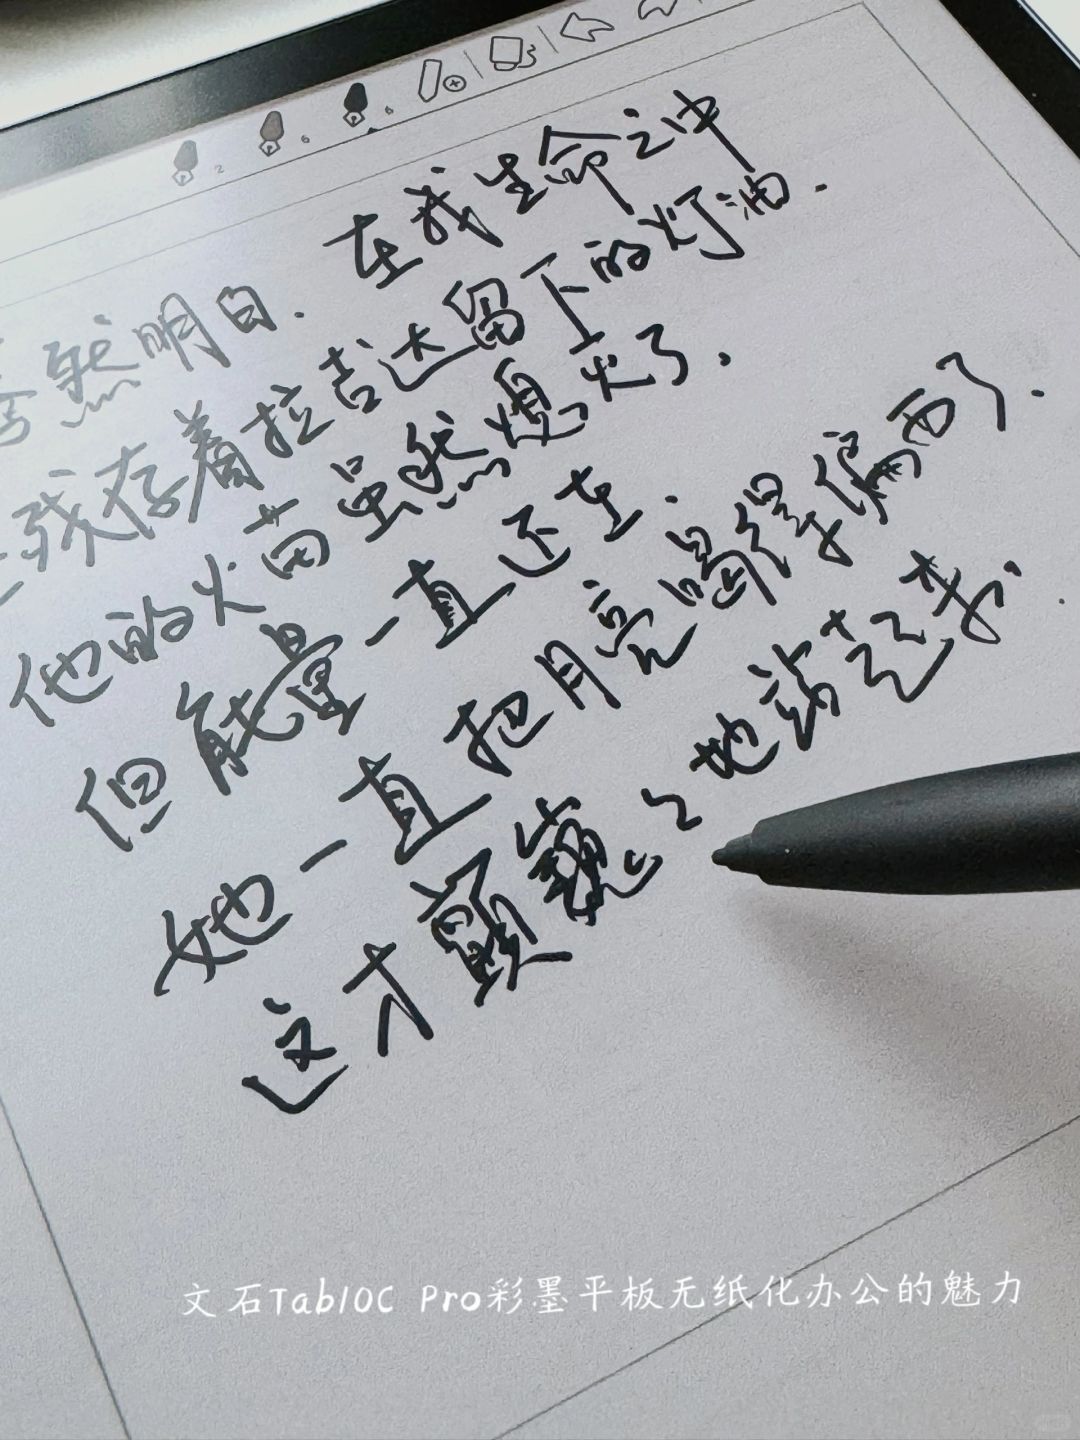 然明白. 在我生命之中
残存着拉吉达留下的灯油.
他的火苗虽然熄灭了.
但能量一直还在.
她一直把月亮喝得偏西了.
这才颤巍々地站起来
文石Tab10C Pro彩墨平板无纸化办公的魅力